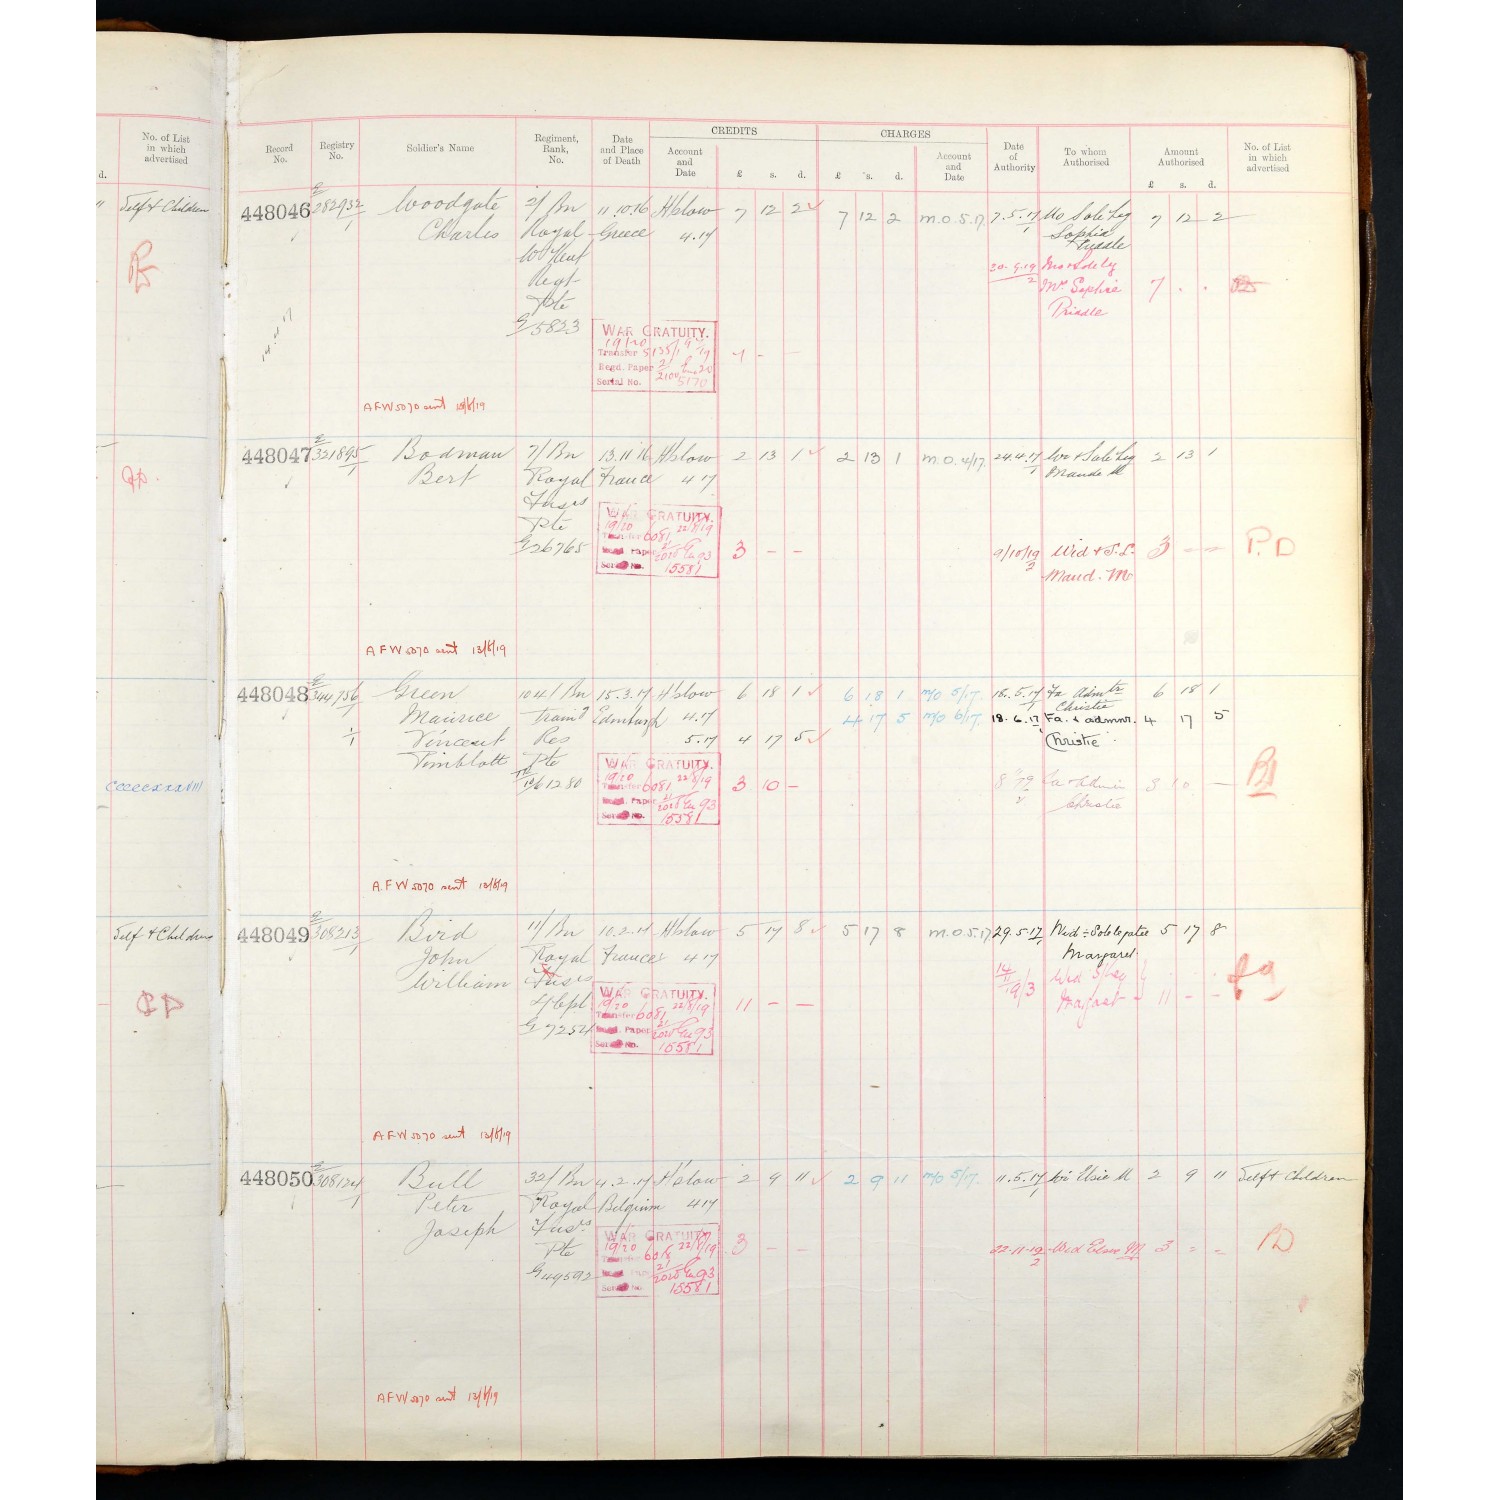 No. of List
in which
advertised
d.
Self & Children
cccccxxxviii
Self & Children
CREDITS
CHARGES
Record
No.
Registry
No.
Soldier's Name
Regiment,
Rank,
No.
Date
and Place
of Death
Account
and
Date
£ s. d.
£ s. d.
Account
and
Date
Date
of
Authority
To whom
Authorised
Amount
Authorised
£ s. d.
No. of List
in which
advertised
448046 282932/1 Woodgate 2/ Bn 11.10.16 Hslow 7 12 2 7 12 2 M.O.5.17. 7.5.17 Mo Sole Leg 7 12 2
Charles Royal Greece 4.17 Sophia
W Kent Priddle
Regt 20.9.19 Mo & Sole Leg
Pte Mrs Sophie 7 . .
G/5823 Priddle
14.4.17
WAR GRATUITY.
19/20
Transfer 5135/1
Regd. Paper
Serial No. 5170
7 - -
A.F.W 5070 sent 13/8/19
448047 321895/1 Bodman 7/ Bn 13.11.16 Hslow 2 13 1 2 13 1 M.O.4/17. 24.4.17 Wi & Sole Leg 2 13 1
Bert Royal France 4 17 Maude M
Fusrs
Pte
G/26765
WAR GRATUITY.
19/20
Transfer 6081 22/8/19
Regd. Paper 2020 93
Serial No. 15581
3 - - 9/10/19 Wid & S.L. 3 - - P.D
Maud. M
A.F.W 5070 sent 13/8/19
448048 344756/1 Green 104/ Bn 15.3.17 Hslow 6 18 1 6 18 1 M/O 5/17. 18.5.17 Fa Admtr 6 18 1
Christie
Maurice Traing Edinburgh 4.17 4 17 5 M/O 6/17. 18.6.17 Fa. & admnr. 4 17 5
Vincent Res 5.17 4 17 5 Christie
Pimblott Pte
TR/10/61280
WAR GRATUITY.
19/20
Transfer 6081 22/8/19
Regd. Paper 2020 93
Serial No. 15581
3 10 - Fa & Admin 3 10 -
Christie
A.F.W 5070 sent 13/8/19
448049 308213/1 Bird 11/ Bn 10.2.17 Hslow 5 17 8 5 17 8 M.O.5.17 29.5.17 Wid = Sole legatee 5 17 8
John Royal France 4 17 Margaret.
William Fusrs Wid S/Leg
L/Cpl 11 - - Margaret 11 - -
G/7254
WAR GRATUITY.
19/20
Transfer 6081 22/8/19
Regd. Paper 2020 93
Serial No. 15581
A.F.W 5070 sent 13/8/19
448050 308124/1 Bull 32/ Bn 4.2.17 Hslow 2 9 11 2 9 11 M/O 5/17. 11.5.17 Wi Elsie M 2 9 11 Self & Children
Peter Royal Belgium 4 17
Joseph Fusrs
Pte
G/49592
WAR GRATUITY.
19/20
Transfer 6018 22/8/19
Regd. Paper 2020 93
Serial No. 15581
3 - - 22.11.19 Wid Elsie M 3 - - PD
A.F.W 5070 sent 13/8/19